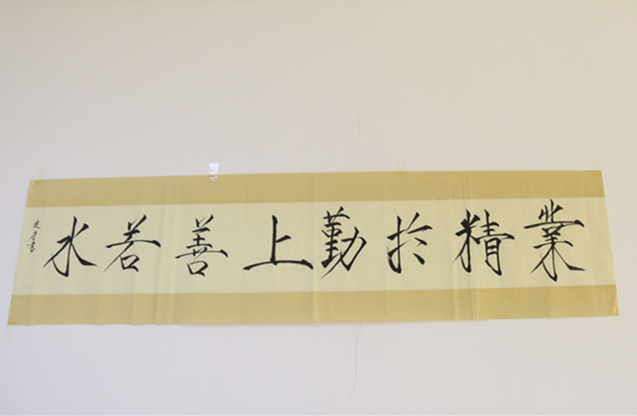 業精於勤上善若水